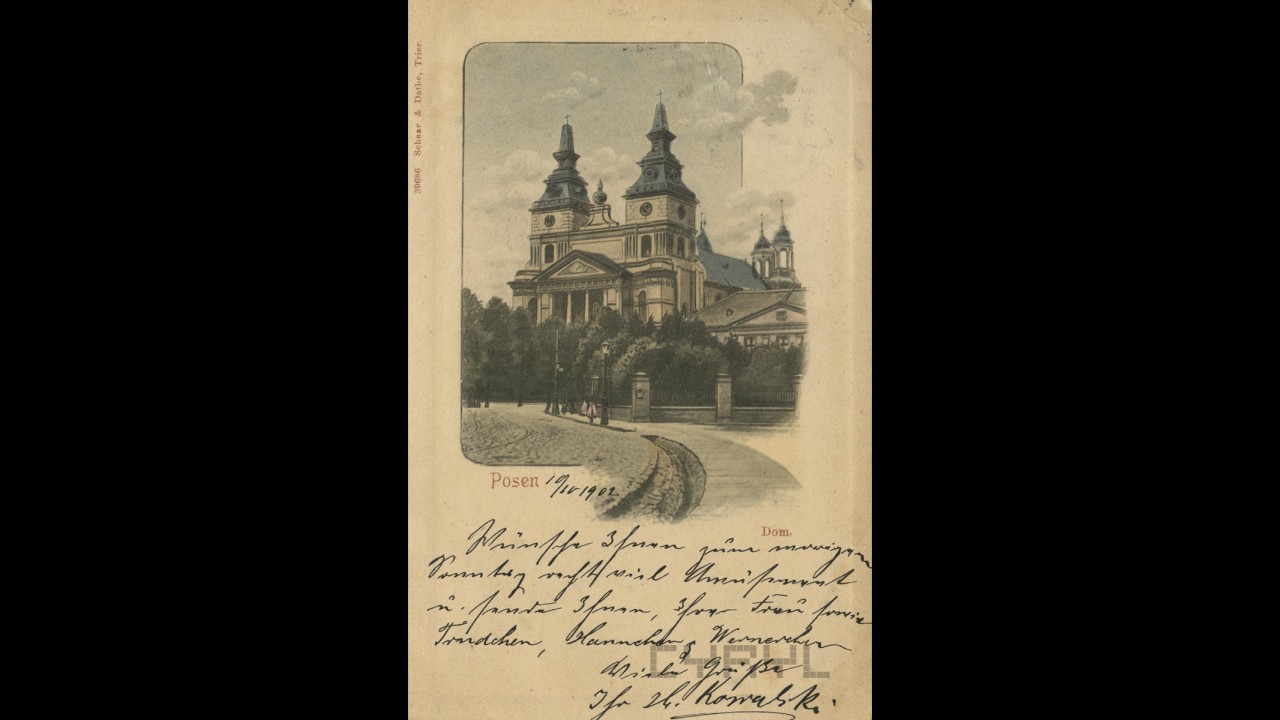 39686 Schaar & Dathe, Trier.
Posen 10/10 1902
Dom.
Wünsche Ihnen zum morigen
Sonntag recht viel Amüsement
u. sende Ihnen, Ihrer Frau sowie
Trudchen, Hannchen & Wernerchen
Viele Grüße
Ihr Kowalski.
CYRYL